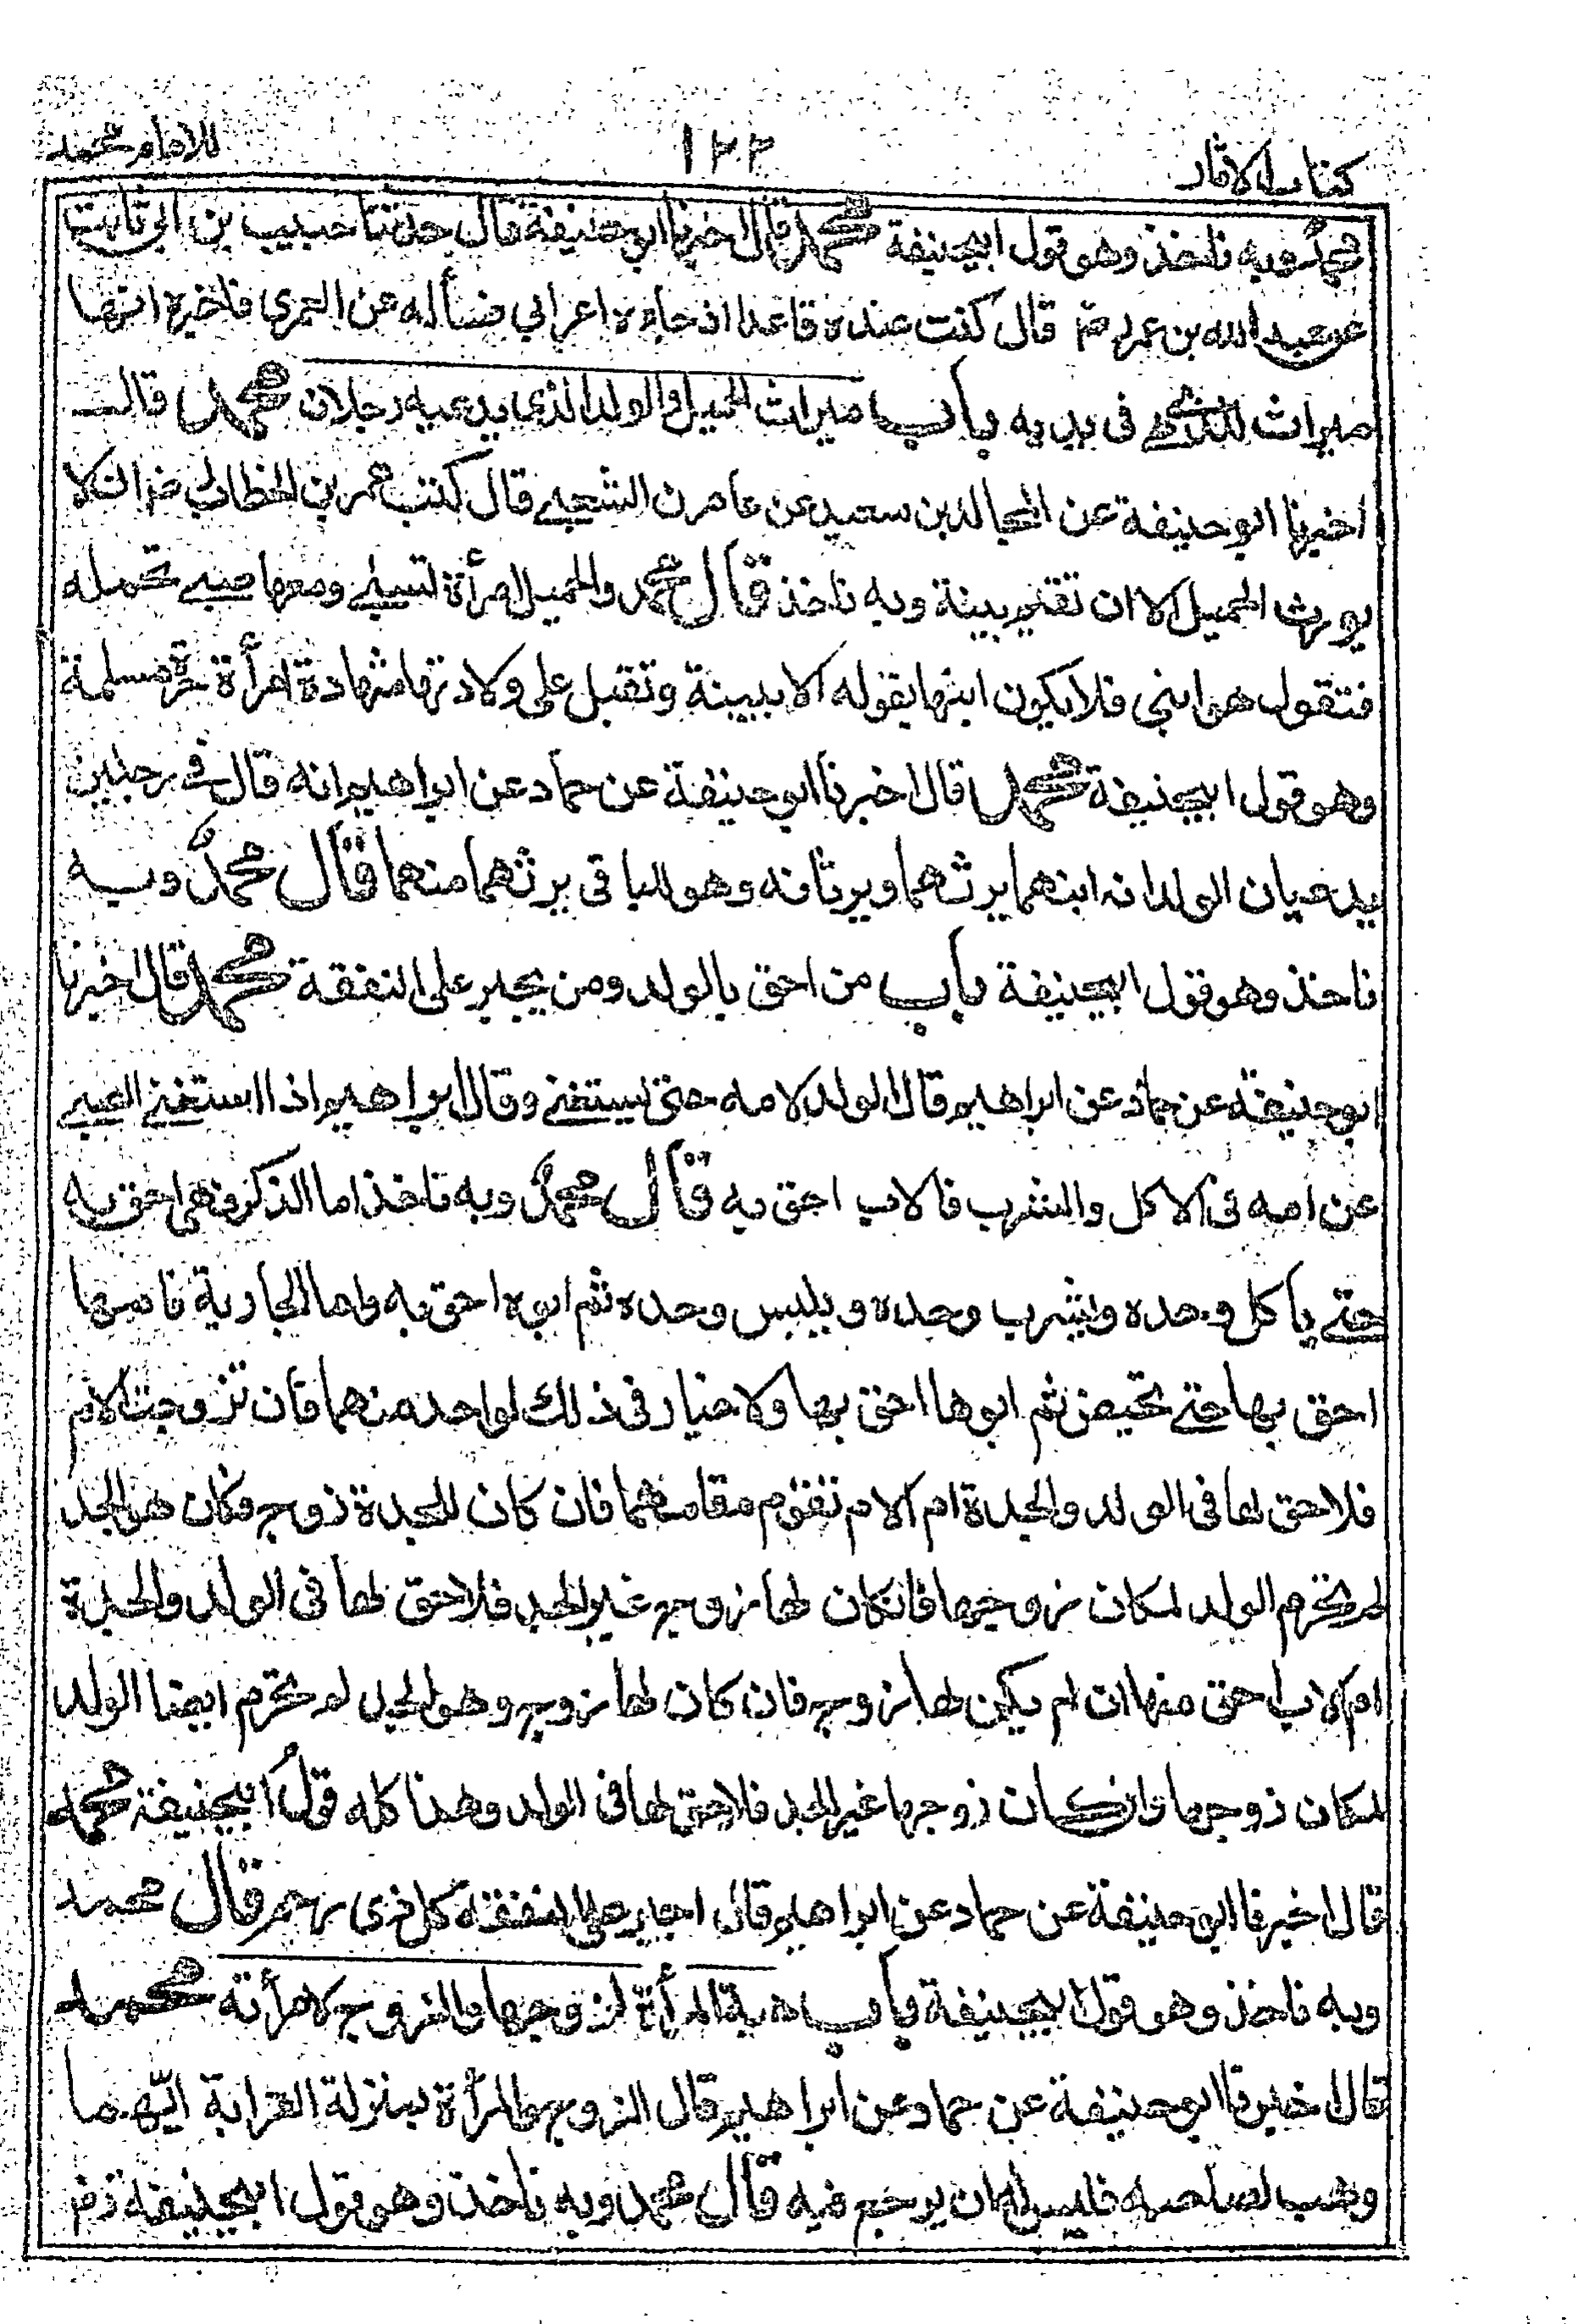 كتاب الاثار ١٢٢ للامام محمد
محمد وبه ناخذ وهو قول ابيحنيفة محمد قال اخبرنا ابو حنيفة قال حدثنا حبيب بن ابي ثابت
عن عبد الله بن عمر رض قال كنت عنده قاعدا اذ جاءه اعرابي فسأله عن العمرى فاخبره انها
ميراث للذي هى فى يديه باب ميراث الحميل والولد الذي يدعيه رجلان محمد قال
اخبرنا ابو حنيفة عن المجالد بن سعيد عن عامر ن الشعبي قال كتب عمر بن الخطاب رض ان لا
يورث الحميل الا ان تقيم بينة وبه ناخذ قال محمد والحميل امرأة تسبى ومعها صبي تحمله
فتقول هو ابني فلا يكون ابنها بقوله الا ببينة وتقبل على ولادتها شهادة امرأة حرة مسلمة
وهو قول ابيحنيفة محمد قال اخبرنا ابو حنيفة عن حماد عن ابراهيم انه قال فى رجلين
يدعيان الولد انه ابنهما يرثهما ويرثانه وهو للباقى يرثهما منهما قال محمد وبه
ناخذ وهو قول ابيحنيفة باب من احق بالولد ومن يجبر على النفقة محمد قال اخبرنا
ابو حنيفة عن حماد عن ابراهيم قال الولد لامه حتى يستغني وقال ابراهيم اذا استغنى الصبي
عن امه فى الاكل والشرب فالاب احق به قال محمد وبه ناخذ اما الذكر فهى احق به
حتى ياكل وحده ويشرب وحده ويلبس وحده ثم ابوه احق به واما الجارية فامها
احق بها حتى تحيض ثم ابوها احق بها ولا خيار فى ذلك لواحد منهما فان تزوجت الام
فلا حق لها فى الولد والجدة ام الام تقوم مقامهما فان كان للجدة زوج فكان هو الجد
لم تحرم الولد لمكان زوجها فانكان لها زوج غير الجد فلا حق لها فى الولد والجدة
ام الاب احق منها ان لم يكن لها زوج فان كان لها زوج وهو الجد لم تحرم ايضا الولد
لمكان زوجها وانكان زوجها غير الجد فلا حق لها فى الولد وهذا كله قول ابيحنيفة محمد
قال اخبرنا ابو حنيفة عن حماد عن ابراهيم قال اجبر على النفقة كل ذى رحم قال محمد
وبه ناخذ وهو قول ابيحنيفة باب هبة المرأة لزوجها والزوج لامرأته محمد
قال اخبرنا ابو حنيفة عن حماد عن ابراهيم قال الزوج والمرأة بمنزلة القرابة ايهما
وهب لصاحبه فليس له ان يرجع فيه قال محمد وبه ناخذ وهو قول ابيحنيفة